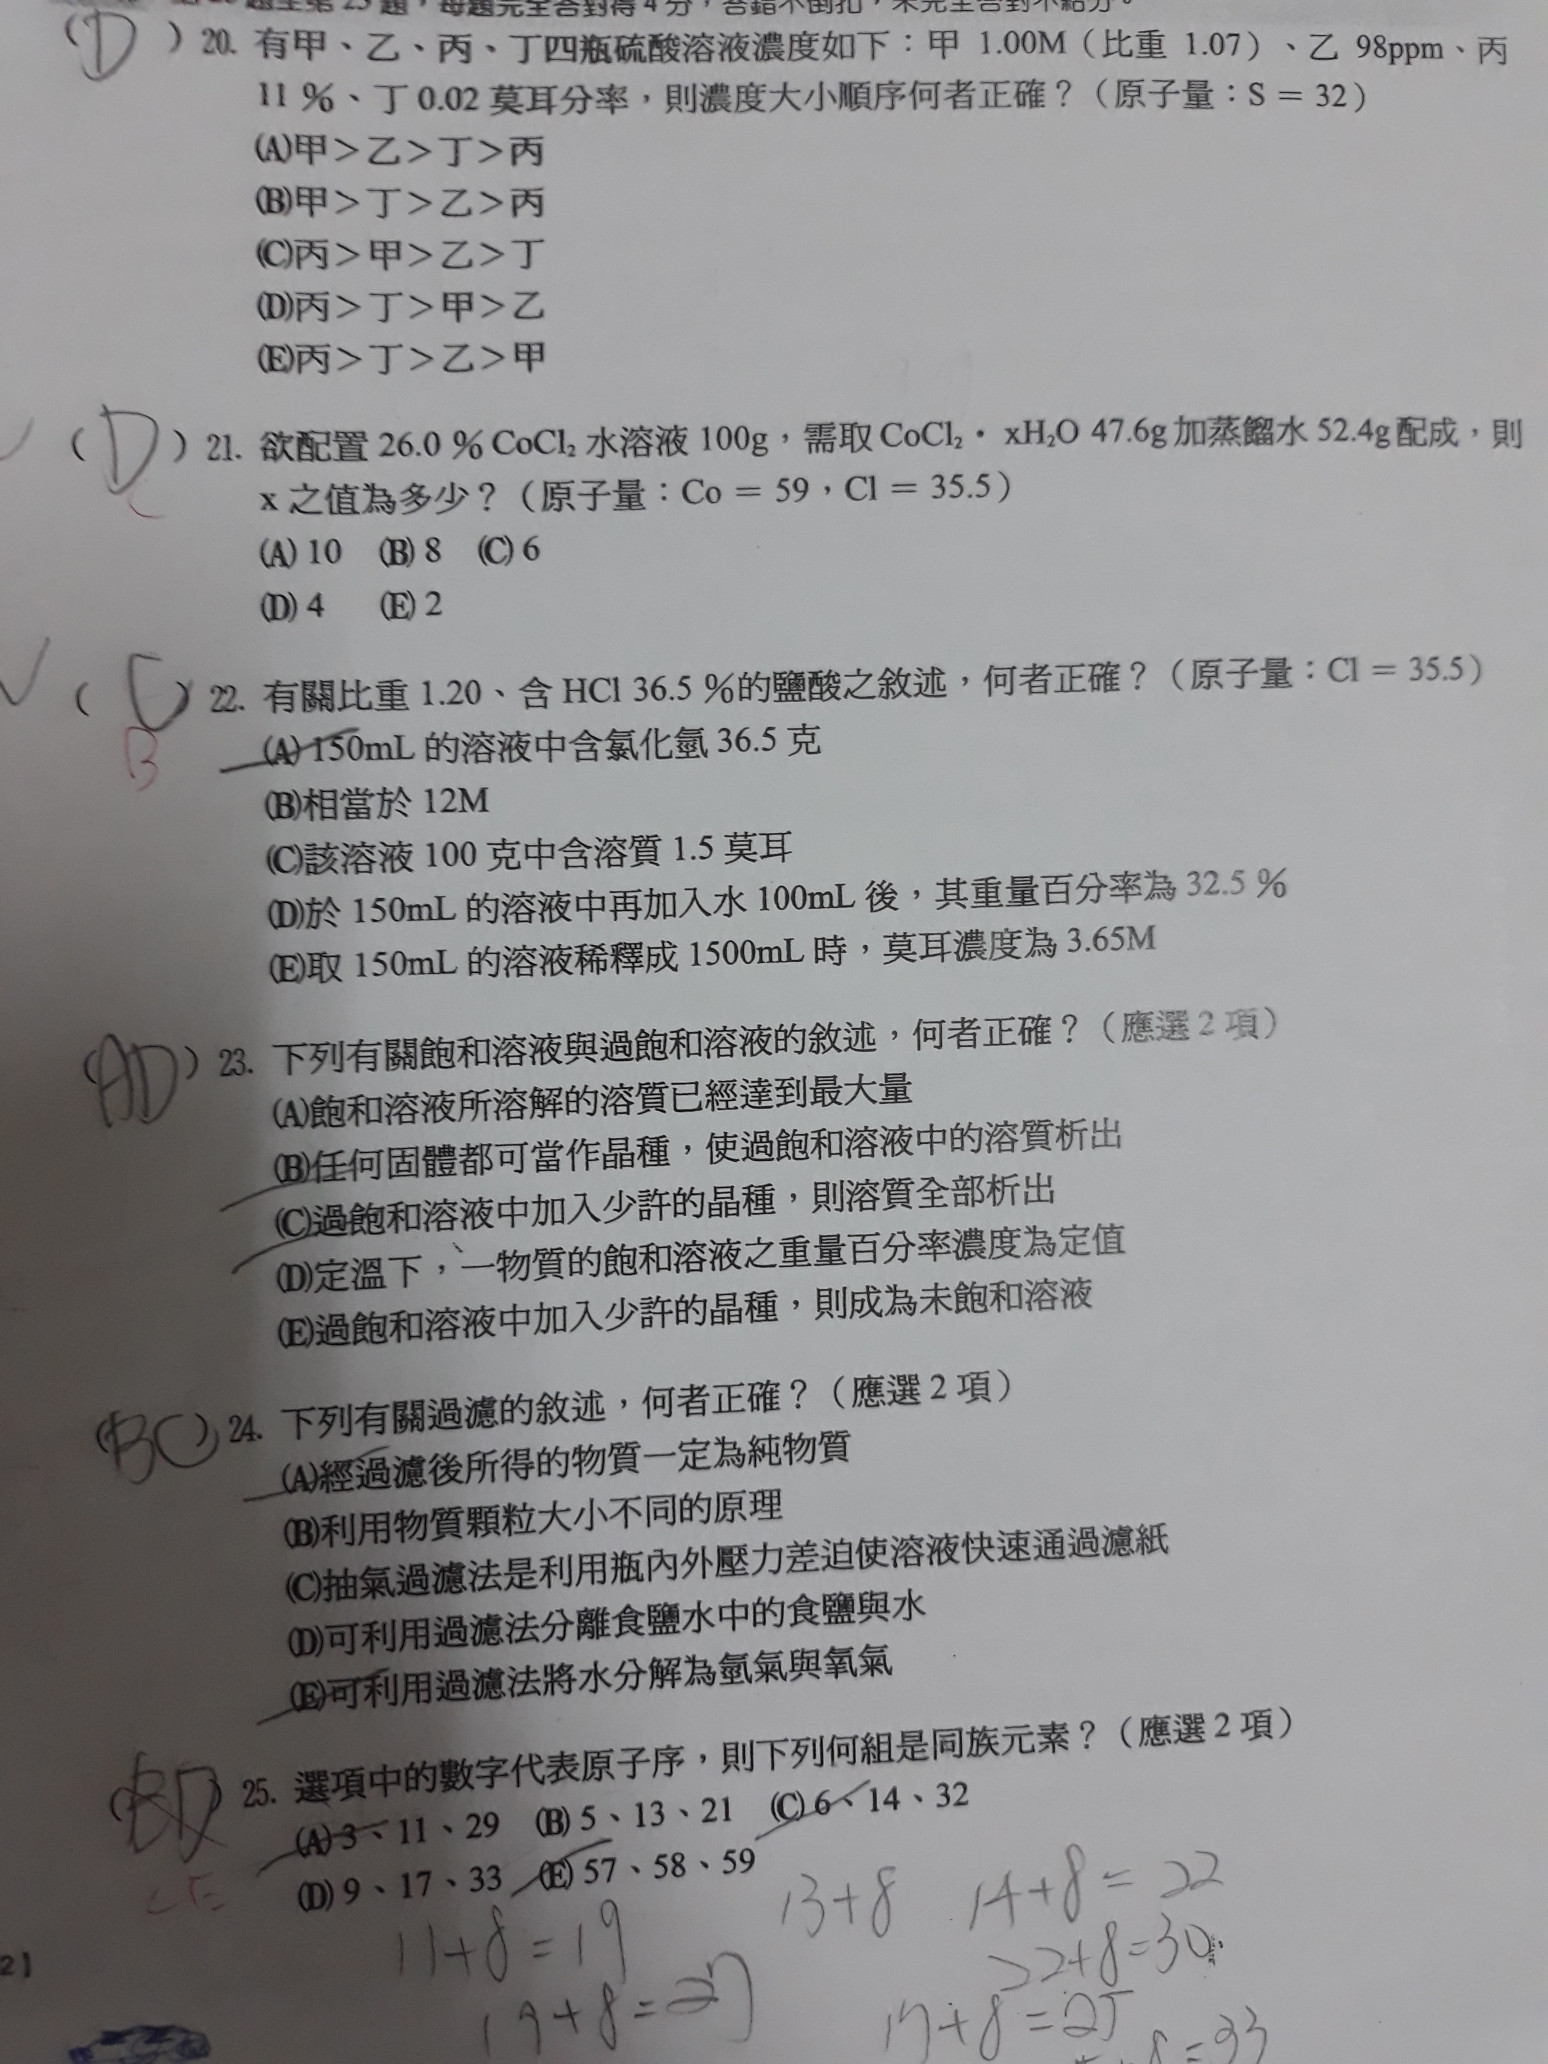 題至第25題，每題完全答對得4分，答錯不倒扣，未完全答對不給分。
(D) 20. 有甲、乙、丙、丁四瓶硫酸溶液濃度如下：甲 1.00M（比重 1.07）、乙 98ppm、丙
11％、丁0.02莫耳分率，則濃度大小順序何者正確？（原子量：S = 32）
(A)甲＞乙＞丁＞丙
(B)甲＞丁＞乙＞丙
(C)丙＞甲＞乙＞丁
(D)丙＞丁＞甲＞乙
(E)丙＞丁＞乙＞甲
(D) 21. 欲配置26.0％CoCl₂水溶液100g，需取CoCl₂・xH₂O 47.6g加蒸餾水52.4g配成，則
C x之值為多少？（原子量：Co = 59，Cl = 35.5）
(A) 10 (B) 8 (C) 6
(D) 4 (E) 2
(E) 22. 有關比重1.20、含HCl 36.5％的鹽酸之敘述，何者正確？（原子量：Cl = 35.5）
B (A) 150mL的溶液中含氯化氫36.5克
(B)相當於12M
(C)該溶液100克中含溶質1.5莫耳
(D)於150mL的溶液中再加入水100mL後，其重量百分率為32.5％
(E)取150mL的溶液稀釋成1500mL時，莫耳濃度為3.65M
(AD) 23. 下列有關飽和溶液與過飽和溶液的敘述，何者正確？（應選2項）
(A)飽和溶液所溶解的溶質已經達到最大量
(B)任何固體都可當作晶種，使過飽和溶液中的溶質析出
(C)過飽和溶液中加入少許的晶種，則溶質全部析出
(D)定溫下，一物質的飽和溶液之重量百分率濃度為定值
(E)過飽和溶液中加入少許的晶種，則成為未飽和溶液
(BC) 24. 下列有關過濾的敘述，何者正確？（應選2項）
(A)經過濾後所得的物質一定為純物質
(B)利用物質顆粒大小不同的原理
(C)抽氣過濾法是利用瓶內外壓力差迫使溶液快速通過濾紙
(D)可利用過濾法分離食鹽水中的食鹽與水
(E)可利用過濾法將水分解為氫氣與氧氣
(BD) 25. 選項中的數字代表原子序，則下列何組是同族元素？（應選2項）
(A) 3、11、29 (B) 5、13、21 (C) 6、14、32
CE (D) 9、17、33 (E) 57、58、59
13+8 14+8=22
11+8=19
22+8=30
19+8=27
17+8=25
8=33
21